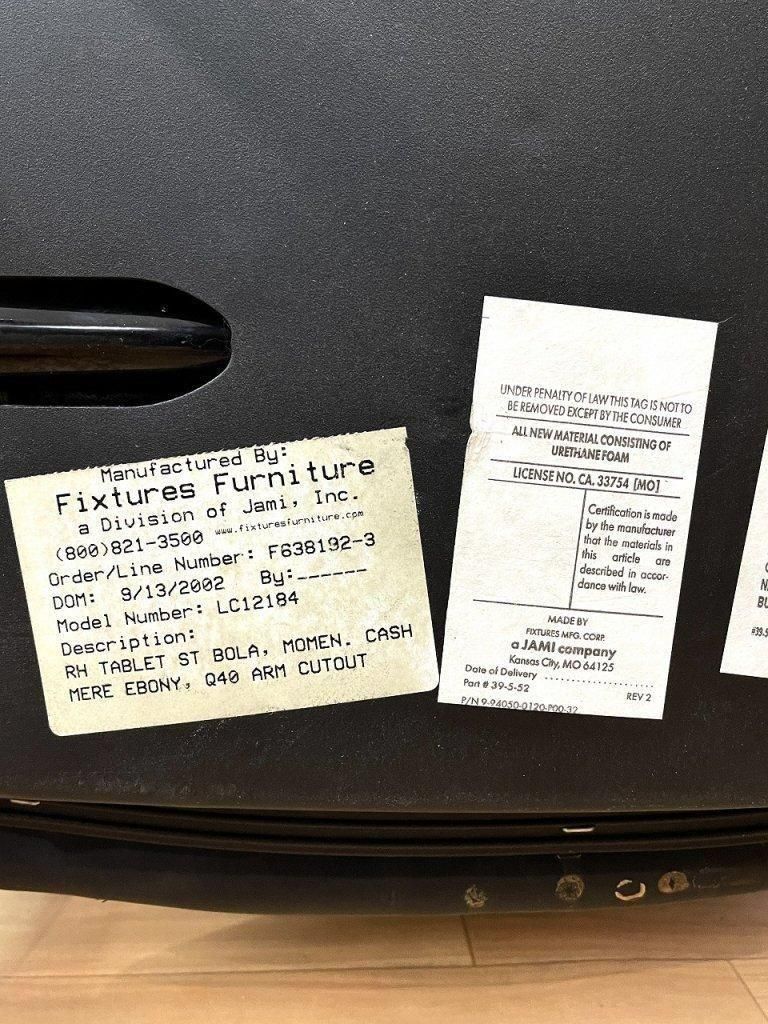 Manufactured By:
Fixtures Furniture
a Division of Jami, Inc.
(800)821-3500 www.fixturesfurniture.com
Order/Line Number: F638192-3
DOM: 9/13/2002 By:______
Model Number: LC12184
Description:
RH TABLET ST BOLA, MOMEN. CASH
MERE EBONY, Q40 ARM CUTOUT
UNDER PENALTY OF LAW THIS TAG IS NOT TO
BE REMOVED EXCEPT BY THE CONSUMER
ALL NEW MATERIAL CONSISTING OF
URETHANE FOAM
LICENSE NO. CA. 33754 [MO]
Certification is made
by the manufacturer
that the materials in
this article are
described in accor-
dance with law.
MADE BY
FIXTURES MFG. CORP.
a JAMI company
Kansas City, MO 64125
Date of Delivery ....................
Part # 39-5-52 REV 2
P/N 9-94050-0120-P00-32